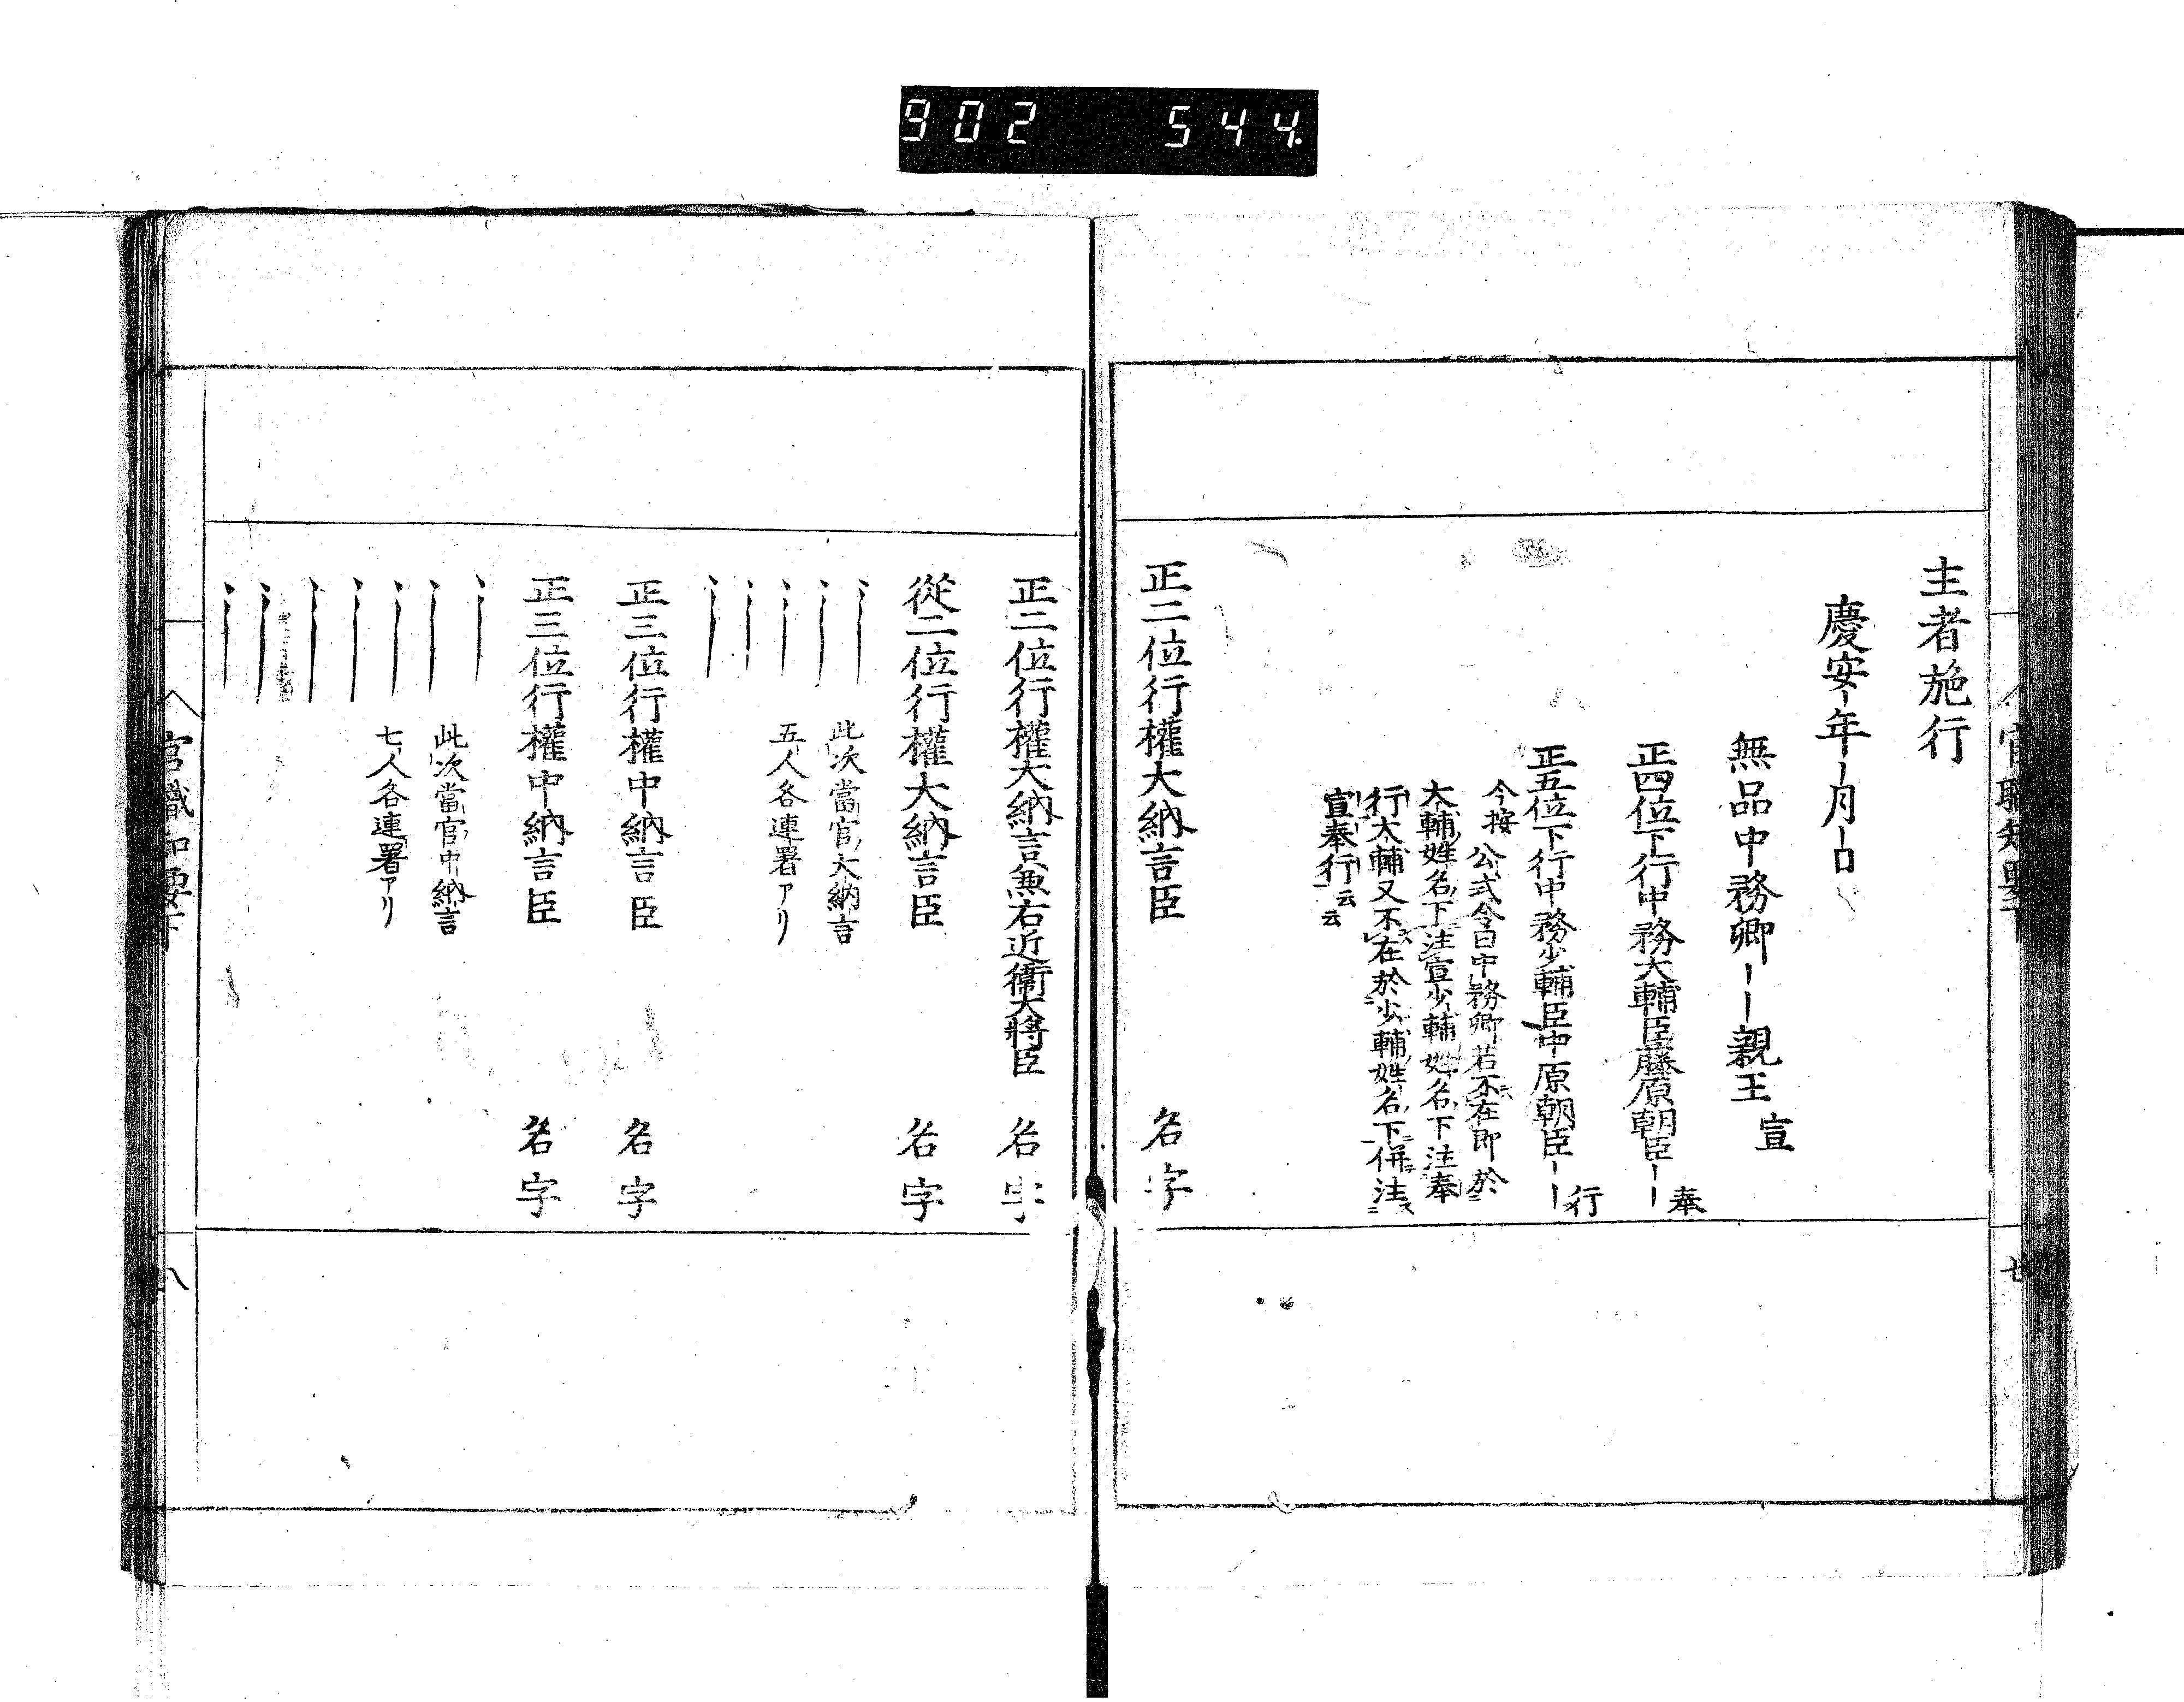 902 544.
主者施行
慶安ー年ー月ー日
無品中務卿ーー親王 宣
正四位下行中務大輔臣藤原朝臣ーー 奉
正五位下行中務少輔臣中原朝臣ーー 行
今按公式令曰中務卿若不在即於
大輔姓名下注宣少輔姓名下注奉
行大輔又不在於少輔姓名下併注
宣奉行云云
正二位行權大納言臣 名字
正二位行權大納言兼右近衞大將臣 名字
從二位行權大納言臣 名字
此次當官大納言
五人各連署アリ
正三位行權中納言臣 名字
正三位行權中納言臣 名字
此次當官中納言
七人各連署アリ
官職知要下
八